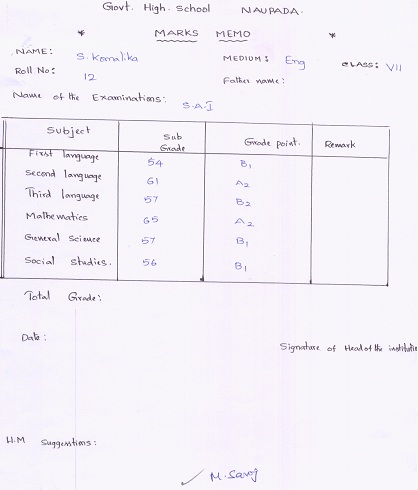 Govt. High. School NAUPADA.
* MARKS MEMO *
NAME: S. Komalika MEDIUM: Eng CLASS: VII
Roll No: 12 Father name:
Name of the Examinations: S.A.I
Subject Sub Grade Grade point. Remark
First language 54 B1
Second language 61 A2
Third language 57 B2
Mathematics 65 A2
General Science 57 B1
Social Studies. 56 B1
Total Grade:
Date:
Signature of Head of the institution
H.M Suggestions:
M. Saroj